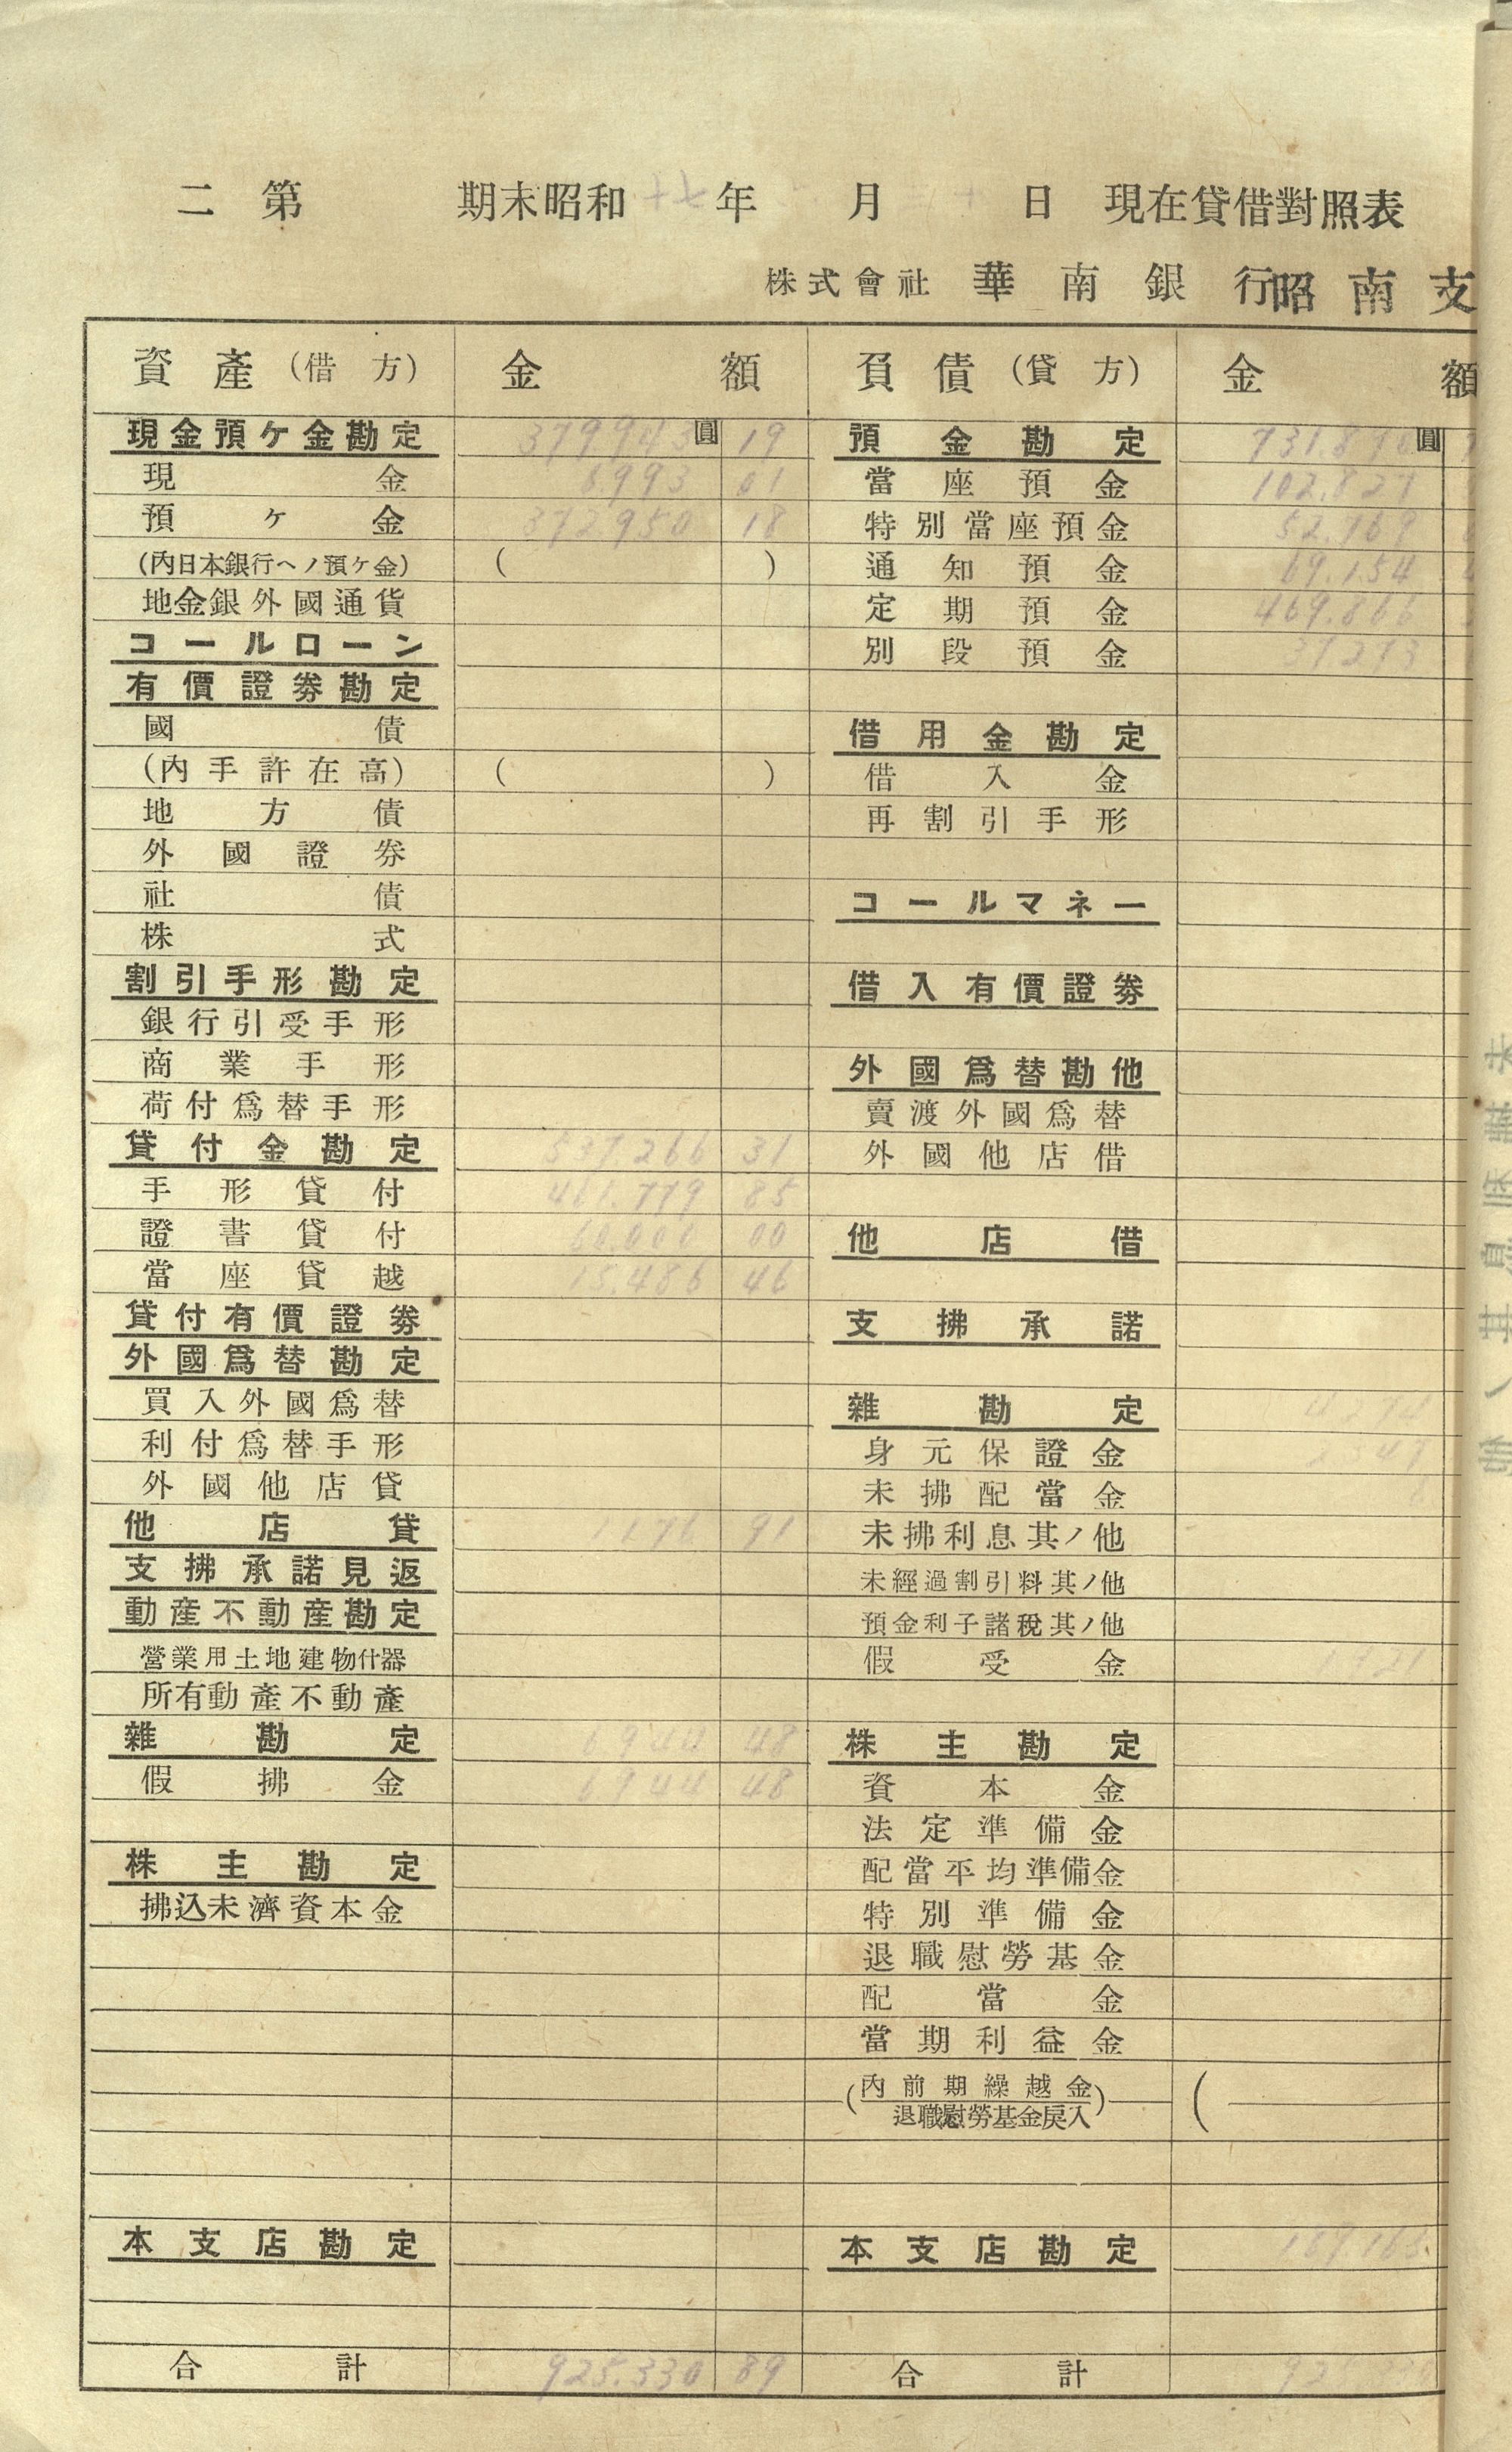 二 第 期末昭和 年 月 日 現在貸借對照表
株式會社 華南銀行昭南支
資產(借方) 金額 負債(貸方) 金額
現金預ケ金勘定 379943圓 19 預金勘定 731.890圓
現金 6993 01 當座預金 102.827
預ケ金 372950 18 特別當座預金 52.769
(內日本銀行ヘノ預ケ金) ( ) 通知預金 69.154
地金銀外國通貨 定期預金 469.866
コールローン 別段預金 37273
有價證劵勘定
國債 借用金勘定
(內手許在高) ( ) 借入金
地方債 再割引手形
外國證券
社債 コールマネー
株式
割引手形勘定 借入有價證劵
銀行引受手形
商業手形 外國爲替勘他
荷付爲替手形 賣渡外國爲替
貸付金勘定 537.266 31 外國他店借
手形貸付 461.779 85
證書貸付 60.000 00 他店借
當座貸越 15.486 46
貸付有價證劵 支拂承諾
外國爲替勘定
買入外國爲替 雜勘定
利付爲替手形 身元保證金
外國他店貸 未拂配當金
他店貸 1176 91 未拂利息其ノ他
支拂承諾見返 未經過割引料其ノ他
動産不動産勘定 預金利子諸稅其ノ他
營業用土地建物什器 假受金
所有動產不動產
雜勘定 6944 48 株主勘定
假拂金 6944 48 資本金
法定準備金
株主勘定 配當平均準備金
拂込未濟資本金 特別準備金
退職慰勞基金
配當金
當期利益金
(內前期繰越金
退職慰勞基金戾入) (
本支店勘定 本支店勘定 189.165
合計 925.330 89 合計